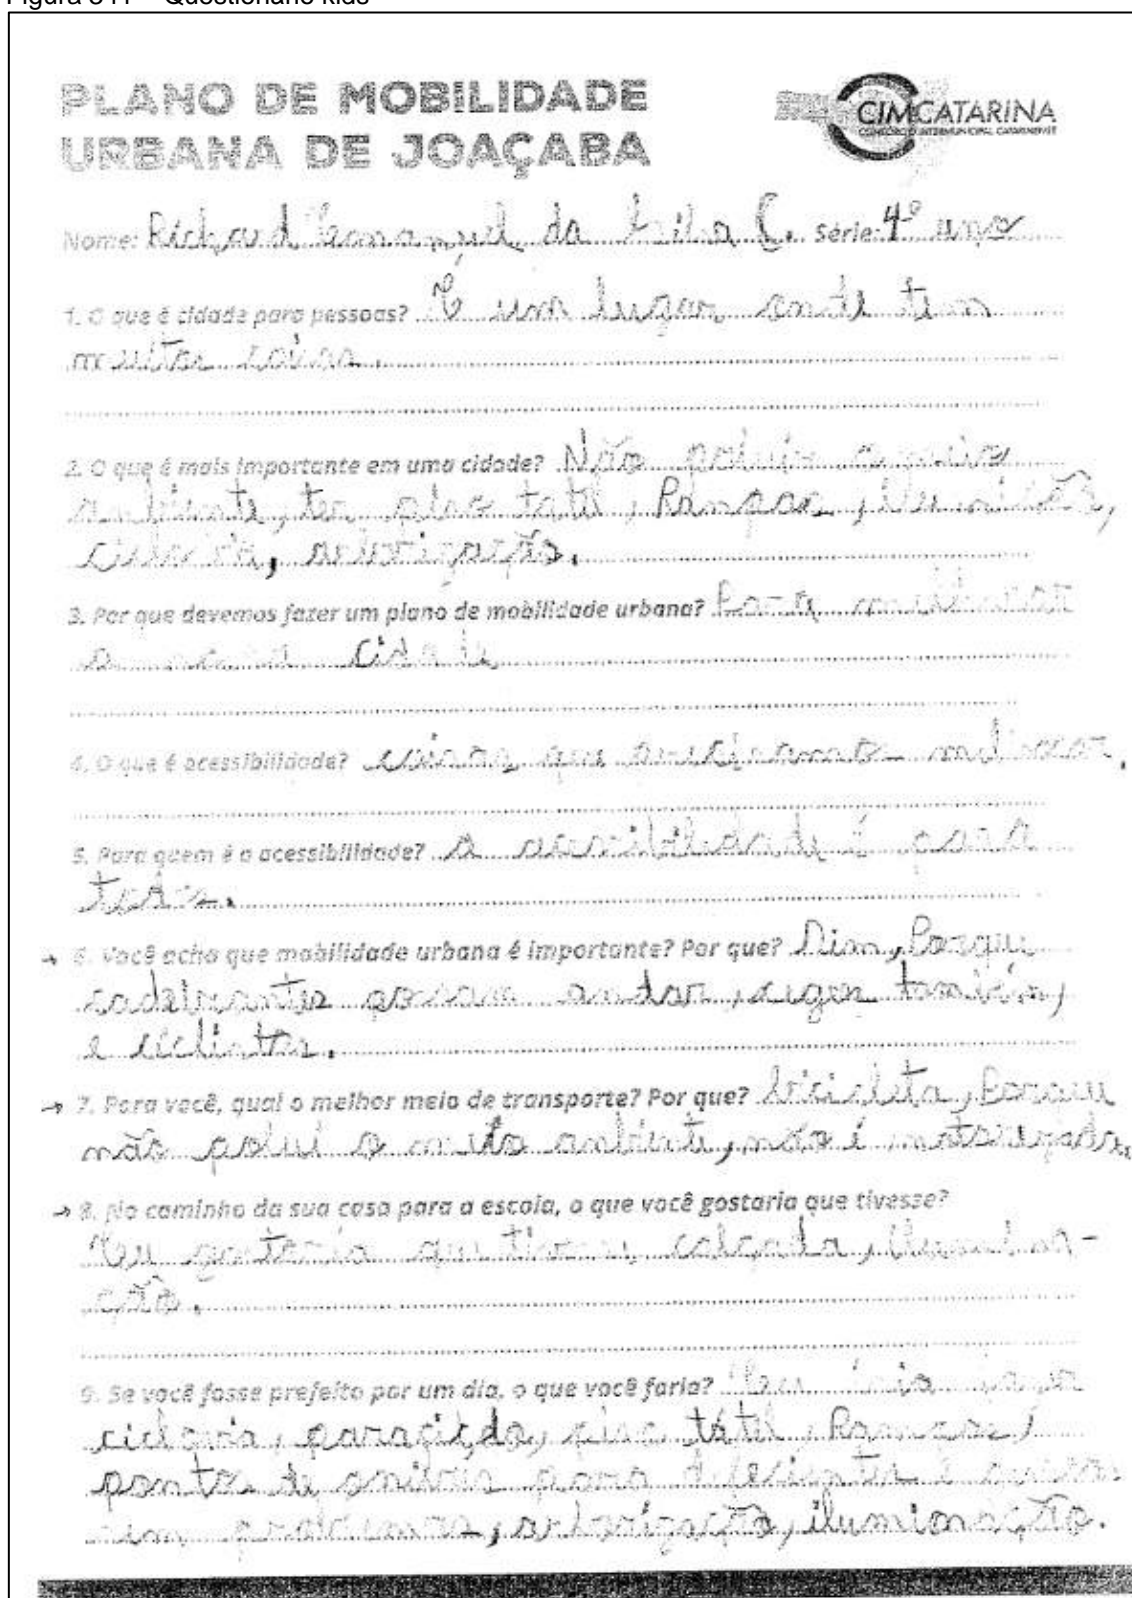 Questionário kids
PLANO DE MOBILIDADE
URBANA DE JOAÇABA
CIMCATARINA
CONSÓRCIO INTERMUNICIPAL CATARINENSE
Nome: Richard Emanuel da Silva C. Série: 4º ano
1. O que é cidade para pessoas? É um lugar onde tem
muitas coisas.
2. O que é mais importante em uma cidade? Não poluir o meio
ambiente, ter piso tatil, Rampas,
ciclovia, arborização.
3. Por que devemos fazer um plano de mobilidade urbana? Para melhorar
a nossa cidade
4. O que é acessibilidade? coisas que precisamos
5. Para quem é a acessibilidade? a acessibilidade é para
todos.
→ 6. Você acha que mobilidade urbana é importante? Por que? Sim, Porque
cadeirantes possam andar, cegos também,
e
→ 7. Para você, qual o melhor meio de transporte? Por que? bicicleta, Porque
não polui o meio ambiente, não é
→ 8. No caminho da sua casa para a escola, o que você gostaria que tivesse?
Eu gostaria que calçada,
ção.
9. Se você fosse prefeito por um dia, o que você faria? Eu iria
ciclovia, piso tátil, Rampas,
pontos de para deficientes e
arborização,